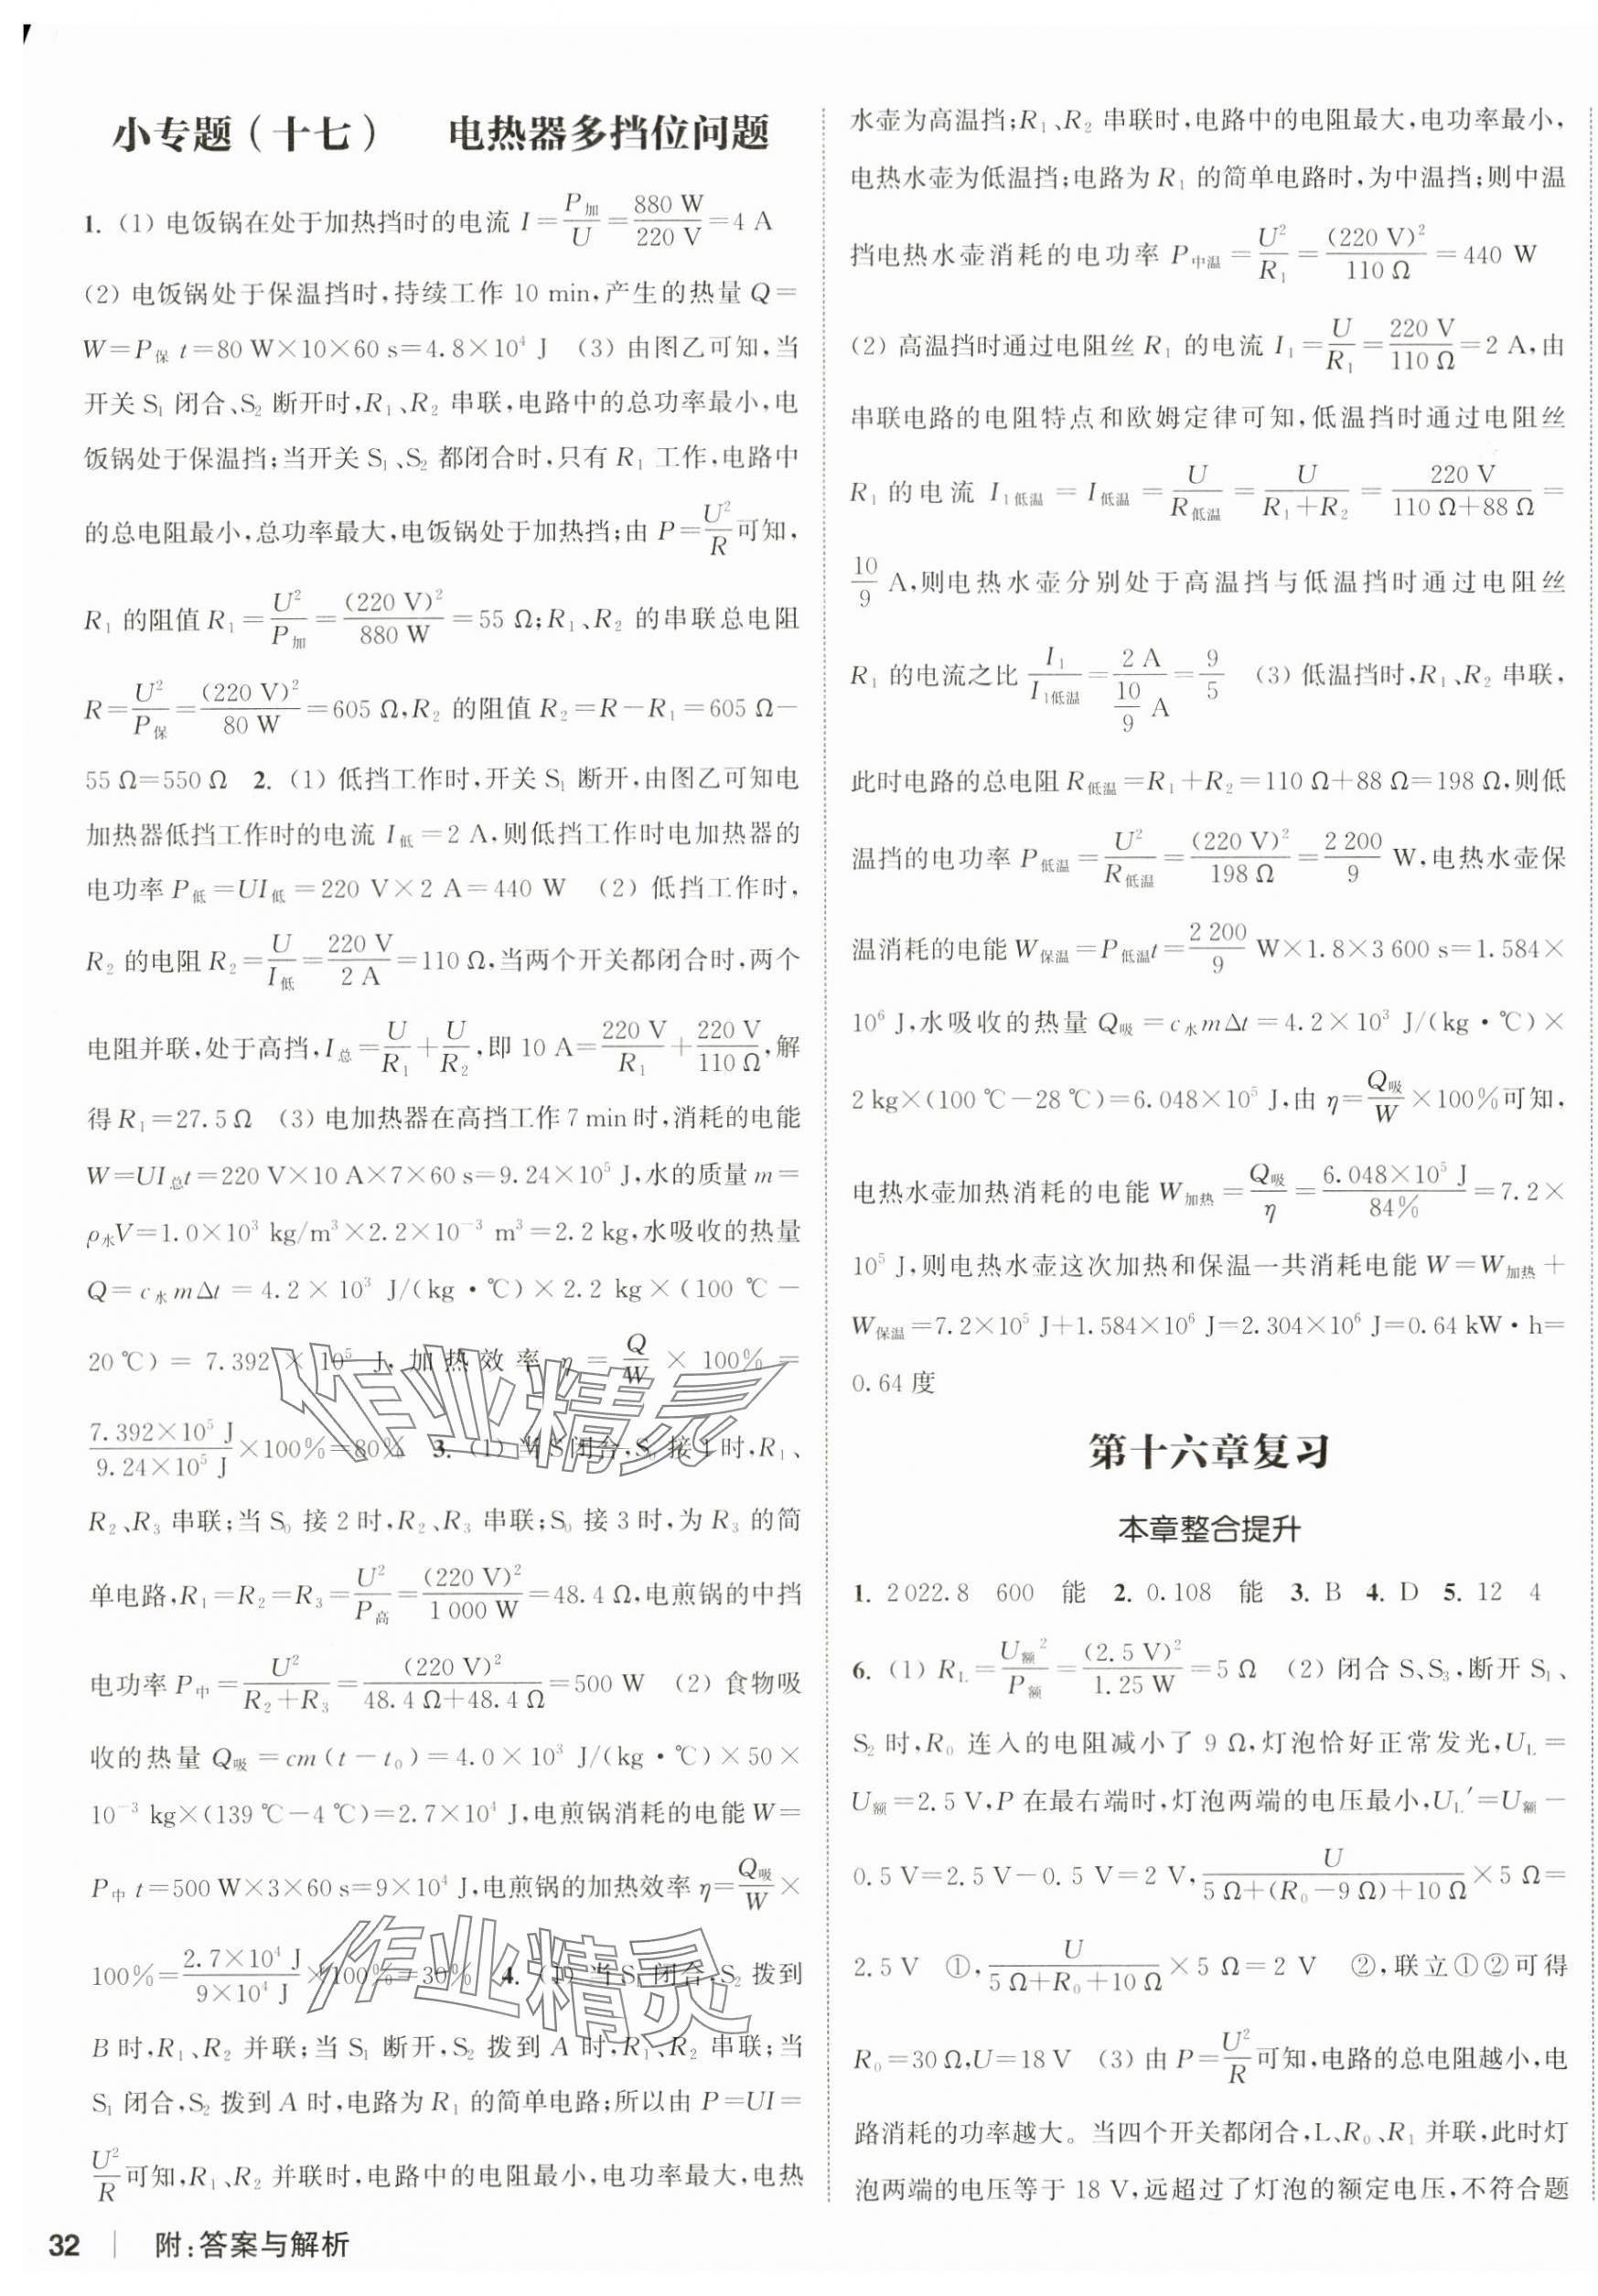 小专题(十七) 电热器多挡位问题
1. (1) 电饭锅在处于加热挡时的电流 I=P加/U=880 W/220 V=4 A
(2) 电饭锅处于保温挡时,持续工作 10 min,产生的热量 Q=
W=P保 t=80 W×10×60 s=4.8×10⁴ J (3) 由图乙可知,当
开关 S₁ 闭合、S₂ 断开时,R₁、R₂ 串联,电路中的总功率最小,电
饭锅处于保温挡;当开关 S₁、S₂ 都闭合时,只有 R₁ 工作,电路中
的总电阻最小,总功率最大,电饭锅处于加热挡;由 P=U²/R可知,
R₁ 的阻值 R₁=U²/P加=(220 V)²/880 W=55 Ω;R₁、R₂ 的串联总电阻
R=U²/P保=(220 V)²/80 W=605 Ω,R₂ 的阻值 R₂=R-R₁=605 Ω-
55 Ω=550 Ω 2. (1) 低挡工作时,开关 S₁ 断开,由图乙可知电
加热器低挡工作时的电流 I低=2 A,则低挡工作时电加热器的
电功率 P低=UI低=220 V×2 A=440 W (2) 低挡工作时,
R₂ 的电阻 R₂=U/I低=220 V/2 A=110 Ω,当两个开关都闭合时,两个
电阻并联,处于高挡,I总=U/R₁+U/R₂,即 10 A=220 V/R₁+220 V/110 Ω,解
得 R₁=27.5 Ω (3) 电加热器在高挡工作 7 min 时,消耗的电能
W=UI总t=220 V×10 A×7×60 s=9.24×10⁵ J,水的质量 m=
ρ水V=1.0×10³ kg/m³×2.2×10⁻³ m³=2.2 kg,水吸收的热量
Q=c水mΔt=4.2×10³ J/(kg·℃)×2.2 kg×(100 ℃-
20 ℃)=7.392×10⁵ J,加热效率 η=Q/W×100%=
7.392×10⁵ J/9.24×10⁵ J×100%=80% 3. (1) 当 S 闭合,S₀ 接 1 时,R₁、
R₂、R₃ 串联;当 S₀ 接 2 时,R₂、R₃ 串联;S₀ 接 3 时,为 R₃ 的简
单电路,R₁=R₂=R₃=U²/P高=(220 V)²/1 000 W=48.4 Ω,电煎锅的中挡
电功率 P中=U²/(R₂+R₃)=(220 V)²/(48.4 Ω+48.4 Ω)=500 W (2) 食物吸
收的热量 Q吸=cm(t-t₀)=4.0×10³ J/(kg·℃)×50×
10⁻³ kg×(139 ℃-4 ℃)=2.7×10⁴ J,电煎锅消耗的电能 W=
P中 t=500 W×3×60 s=9×10⁴ J,电煎锅的加热效率 η=Q吸/W×
100%=2.7×10⁴ J/9×10⁴ J×100%=30% 4. (1) 当 S₁ 闭合,S₂ 拨到
B 时,R₁、R₂ 并联;当 S₁ 断开,S₂ 拨到 A 时,R₁、R₂ 串联;当
S₁ 闭合,S₂ 拨到 A 时,电路为 R₁ 的简单电路;所以由 P=UI=
U²/R可知,R₁、R₂ 并联时,电路中的电阻最小,电功率最大,电热
32 附:答案与解析
水壶为高温挡;R₁、R₂ 串联时,电路中的电阻最大,电功率最小,
电热水壶为低温挡;电路为 R₁ 的简单电路时,为中温挡;则中温
挡电热水壶消耗的电功率 P中温=U²/R₁=(220 V)²/110 Ω=440 W
(2) 高温挡时通过电阻丝 R₁ 的电流 I₁=U/R₁=220 V/110 Ω=2 A,由
串联电路的电阻特点和欧姆定律可知,低温挡时通过电阻丝
R₁ 的电流 I₁低温=I低温=U/R低温=U/(R₁+R₂)=220 V/(110 Ω+88 Ω)=
10/9 A,则电热水壶分别处于高温挡与低温挡时通过电阻丝
R₁ 的电流之比 I₁/I₁低温=2 A/(10/9 A)=9/5 (3) 低温挡时,R₁、R₂ 串联,
此时电路的总电阻 R低温=R₁+R₂=110 Ω+88 Ω=198 Ω,则低
温挡的电功率 P低温=U²/R低温=(220 V)²/198 Ω=2 200/9 W,电热水壶保
温消耗的电能 W保温=P低温t=2 200/9 W×1.8×3 600 s=1.584×
10⁶ J,水吸收的热量 Q吸=c水mΔt=4.2×10³ J/(kg·℃)×
2 kg×(100 ℃-28 ℃)=6.048×10⁵ J,由 η=Q吸/W×100%可知,
电热水壶加热消耗的电能 W加热=Q吸/η=6.048×10⁵ J/84%=7.2×
10⁵ J,则电热水壶这次加热和保温一共消耗电能 W=W加热+
W保温=7.2×10⁵ J+1.584×10⁶ J=2.304×10⁶ J=0.64 kW·h=
0.64 度
第十六章复习
本章整合提升
1. 2 022.8 600 能 2. 0.108 能 3. B 4. D 5. 12 4
6. (1) R_L=U额²/P额=(2.5 V)²/1.25 W=5 Ω (2) 闭合 S、S₃,断开 S₁、
S₂ 时,R₀ 连入的电阻减小了 9 Ω,灯泡恰好正常发光,U_L=
U额=2.5 V,P 在最右端时,灯泡两端的电压最小,U_L′=U额-
0.5 V=2.5 V-0.5 V=2 V,U/(5 Ω+(R₀-9 Ω)+10 Ω)×5 Ω=
2.5 V ①,U/(5 Ω+R₀+10 Ω)×5 Ω=2 V ②,联立①②可得
R₀=30 Ω,U=18 V (3) 由 P=U²/R可知,电路的总电阻越小,电
路消耗的功率越大。当四个开关都闭合,L、R₀、R₁ 并联,此时灯
泡两端的电压等于 18 V,远超过了灯泡的额定电压,不符合题
作业精灵
作业精灵